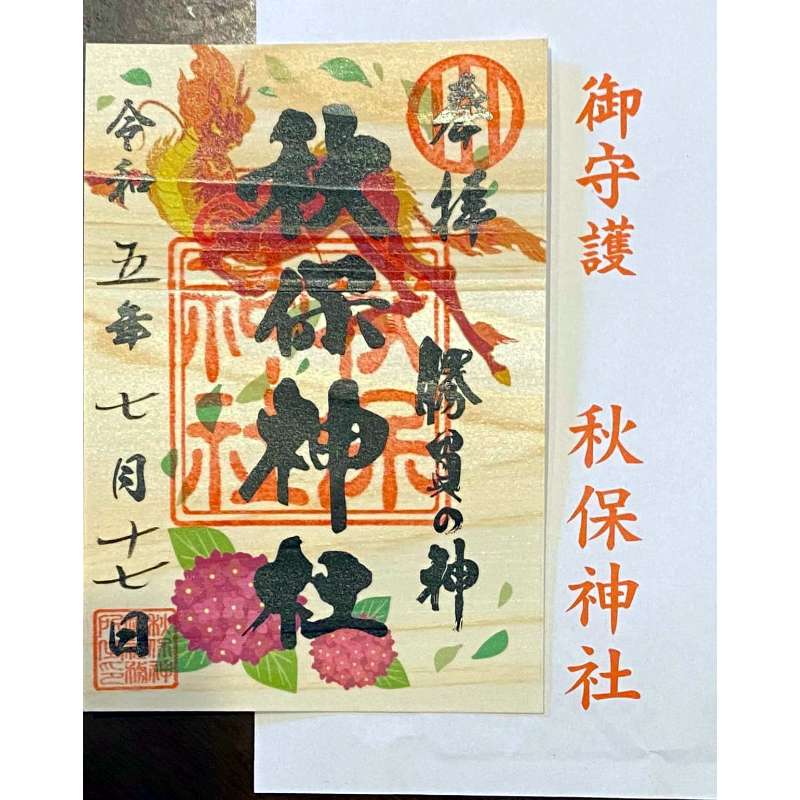 御守護 秋保神社
奉拝
勝負の神
秋保神社
令和五年七月十七日
秋保神社